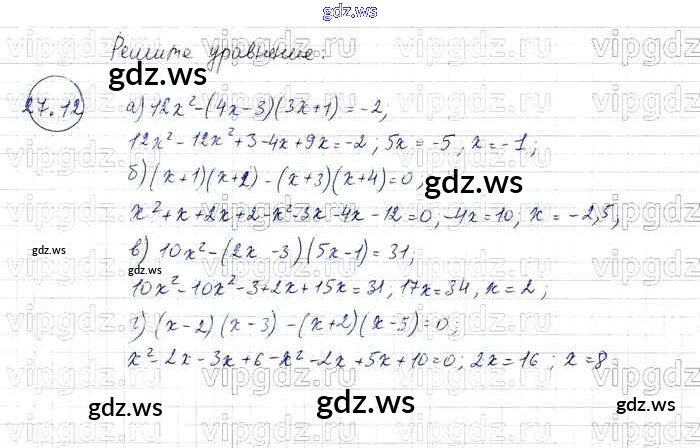 gdz.ws
Решите уравнение:
gdz.ws
27.12
а) 12x²-(4x-3)(3x+1)=-2,
12x²-12x²+3-4x+9x=-2; 5x=-5, x=-1;
б) (x+1)(x+2)-(x+3)(x+4)=0,
gdz.ws
x²+x+2x+2-x²-3x-4x-12=0, -4x=10, x=-2,5,
gdz.ws
в) 10x²-(2x-3)(5x-1)=31,
gdz.ws
10x²-10x²-3+2x+15x=31, 17x=34, x=2;
г) (x-2)(x-3)-(x+2)(x-5)=0;
x²-2x-3x+6-x²-2x+5x+10=0; 2x=16; x=8
gdz.ws
gdz.ws
gdz.ws
vipgdz.ru vipgdz.ru vipgdz.ru
vipgdz.ru vipgdz.ru vipgdz.ru
vipgdz.ru vipgdz.ru vipgdz.ru
vipgdz.ru vipgdz.ru vipgdz.ru